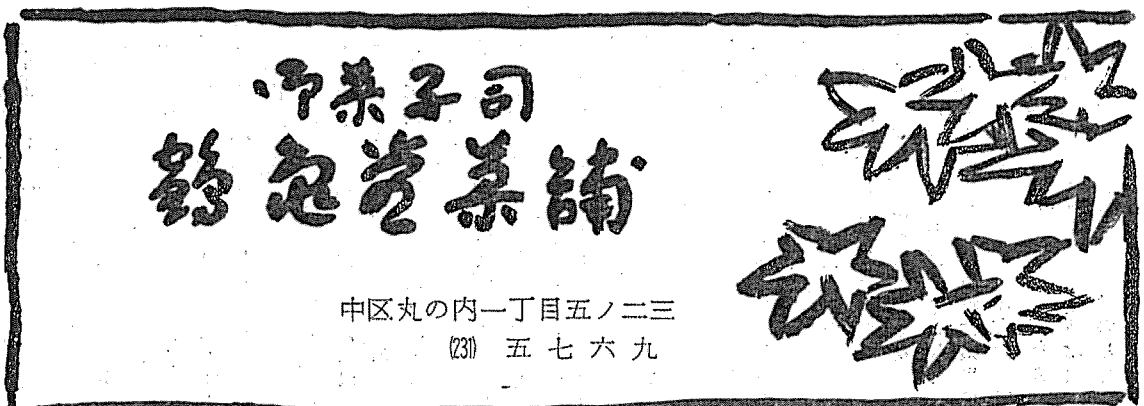 御菓子司
鶴亀堂菓舗
中区丸の内一丁目五ノ二三
(231) 五七六九